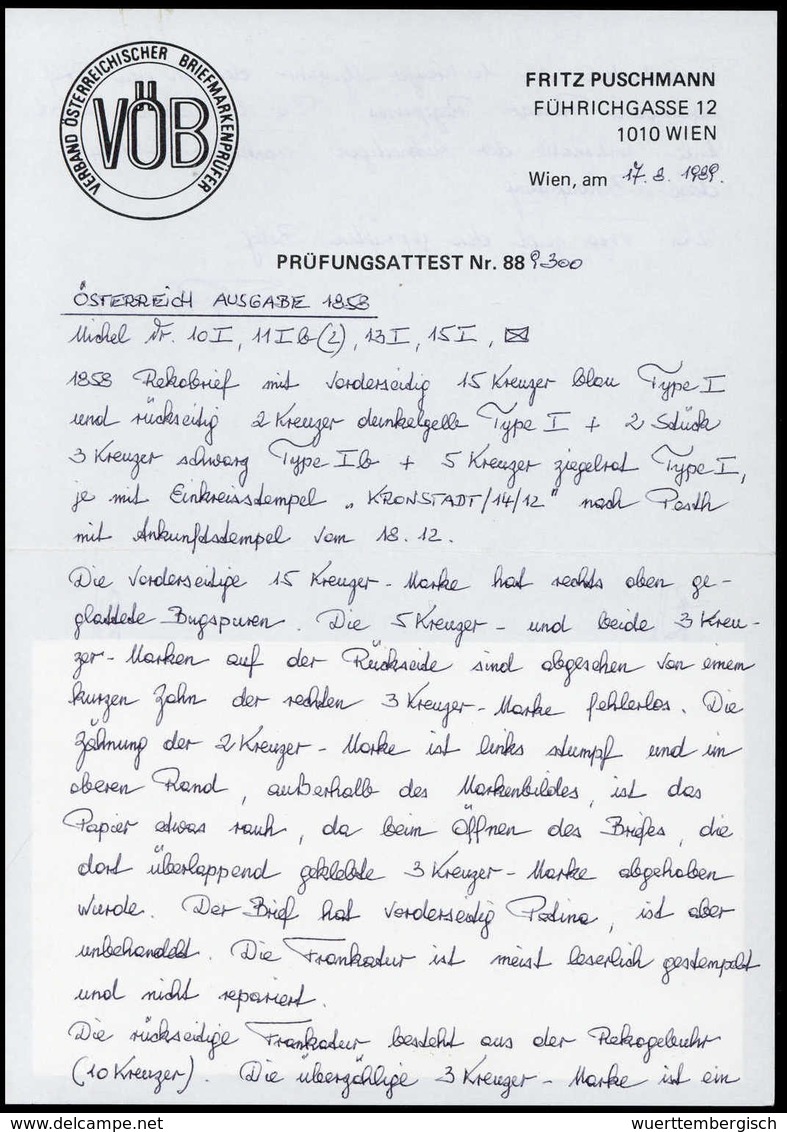 VERBAND ÖSTERREICHISCHER BRIEFMARKENPRÜFER
VÖB
FRITZ PUSCHMANN
FÜHRICHGASSE 12
1010 WIEN
Wien, am 17. 8. 1989.
PRÜFUNGSATTEST Nr. 88 9300
ÖSTERREICH AUSGABE 1858
Michel Nr. 10 I, 11 I b (2), 13 I, 15 I, ✉
1858 Rekobrief mit vorderseitig 15 Kreuzer blau Type I
und rückseitig 2 Kreuzer dunkelgelb Type I + 2 Stück
3 Kreuzer schwarz Type I b + 5 Kreuzer ziegelrot Type I,
je mit Einkreisstempel „KRONSTADT/14/12" nach Pesth
mit Ankunftstempel vom 18. 12.
Die vorderseitige 15 Kreuzer - Marke hat rechts oben ge-
glättete Bugspuren. Die 5 Kreuzer - und beide 3 Kreu-
zer - Marken auf der Rückseite sind abgesehen von einem
kurzen Zahn der rechten 3 Kreuzer - Marke fehlerlos. Die
Zähnung der 2 Kreuzer - Marke ist links stumpf und im
oberen Rand, außerhalb des Markenbildes, ist das
Papier etwas rauh, da beim Öffnen des Briefes, die
dort überlappend geklebte 3 Kreuzer - Marke abgehoben
wurde. Der Brief hat vorderseitig Patina, ist aber
unbehandelt. Die Frankatur ist meist leserlich gestempelt
und nicht repariert.
Die rückseitige Frankatur besteht aus der Rekogebühr
(10 Kreuzer). Die überzählige 3 Kreuzer - Marke ist ein
www.delcampe.net
wuerttembergisch